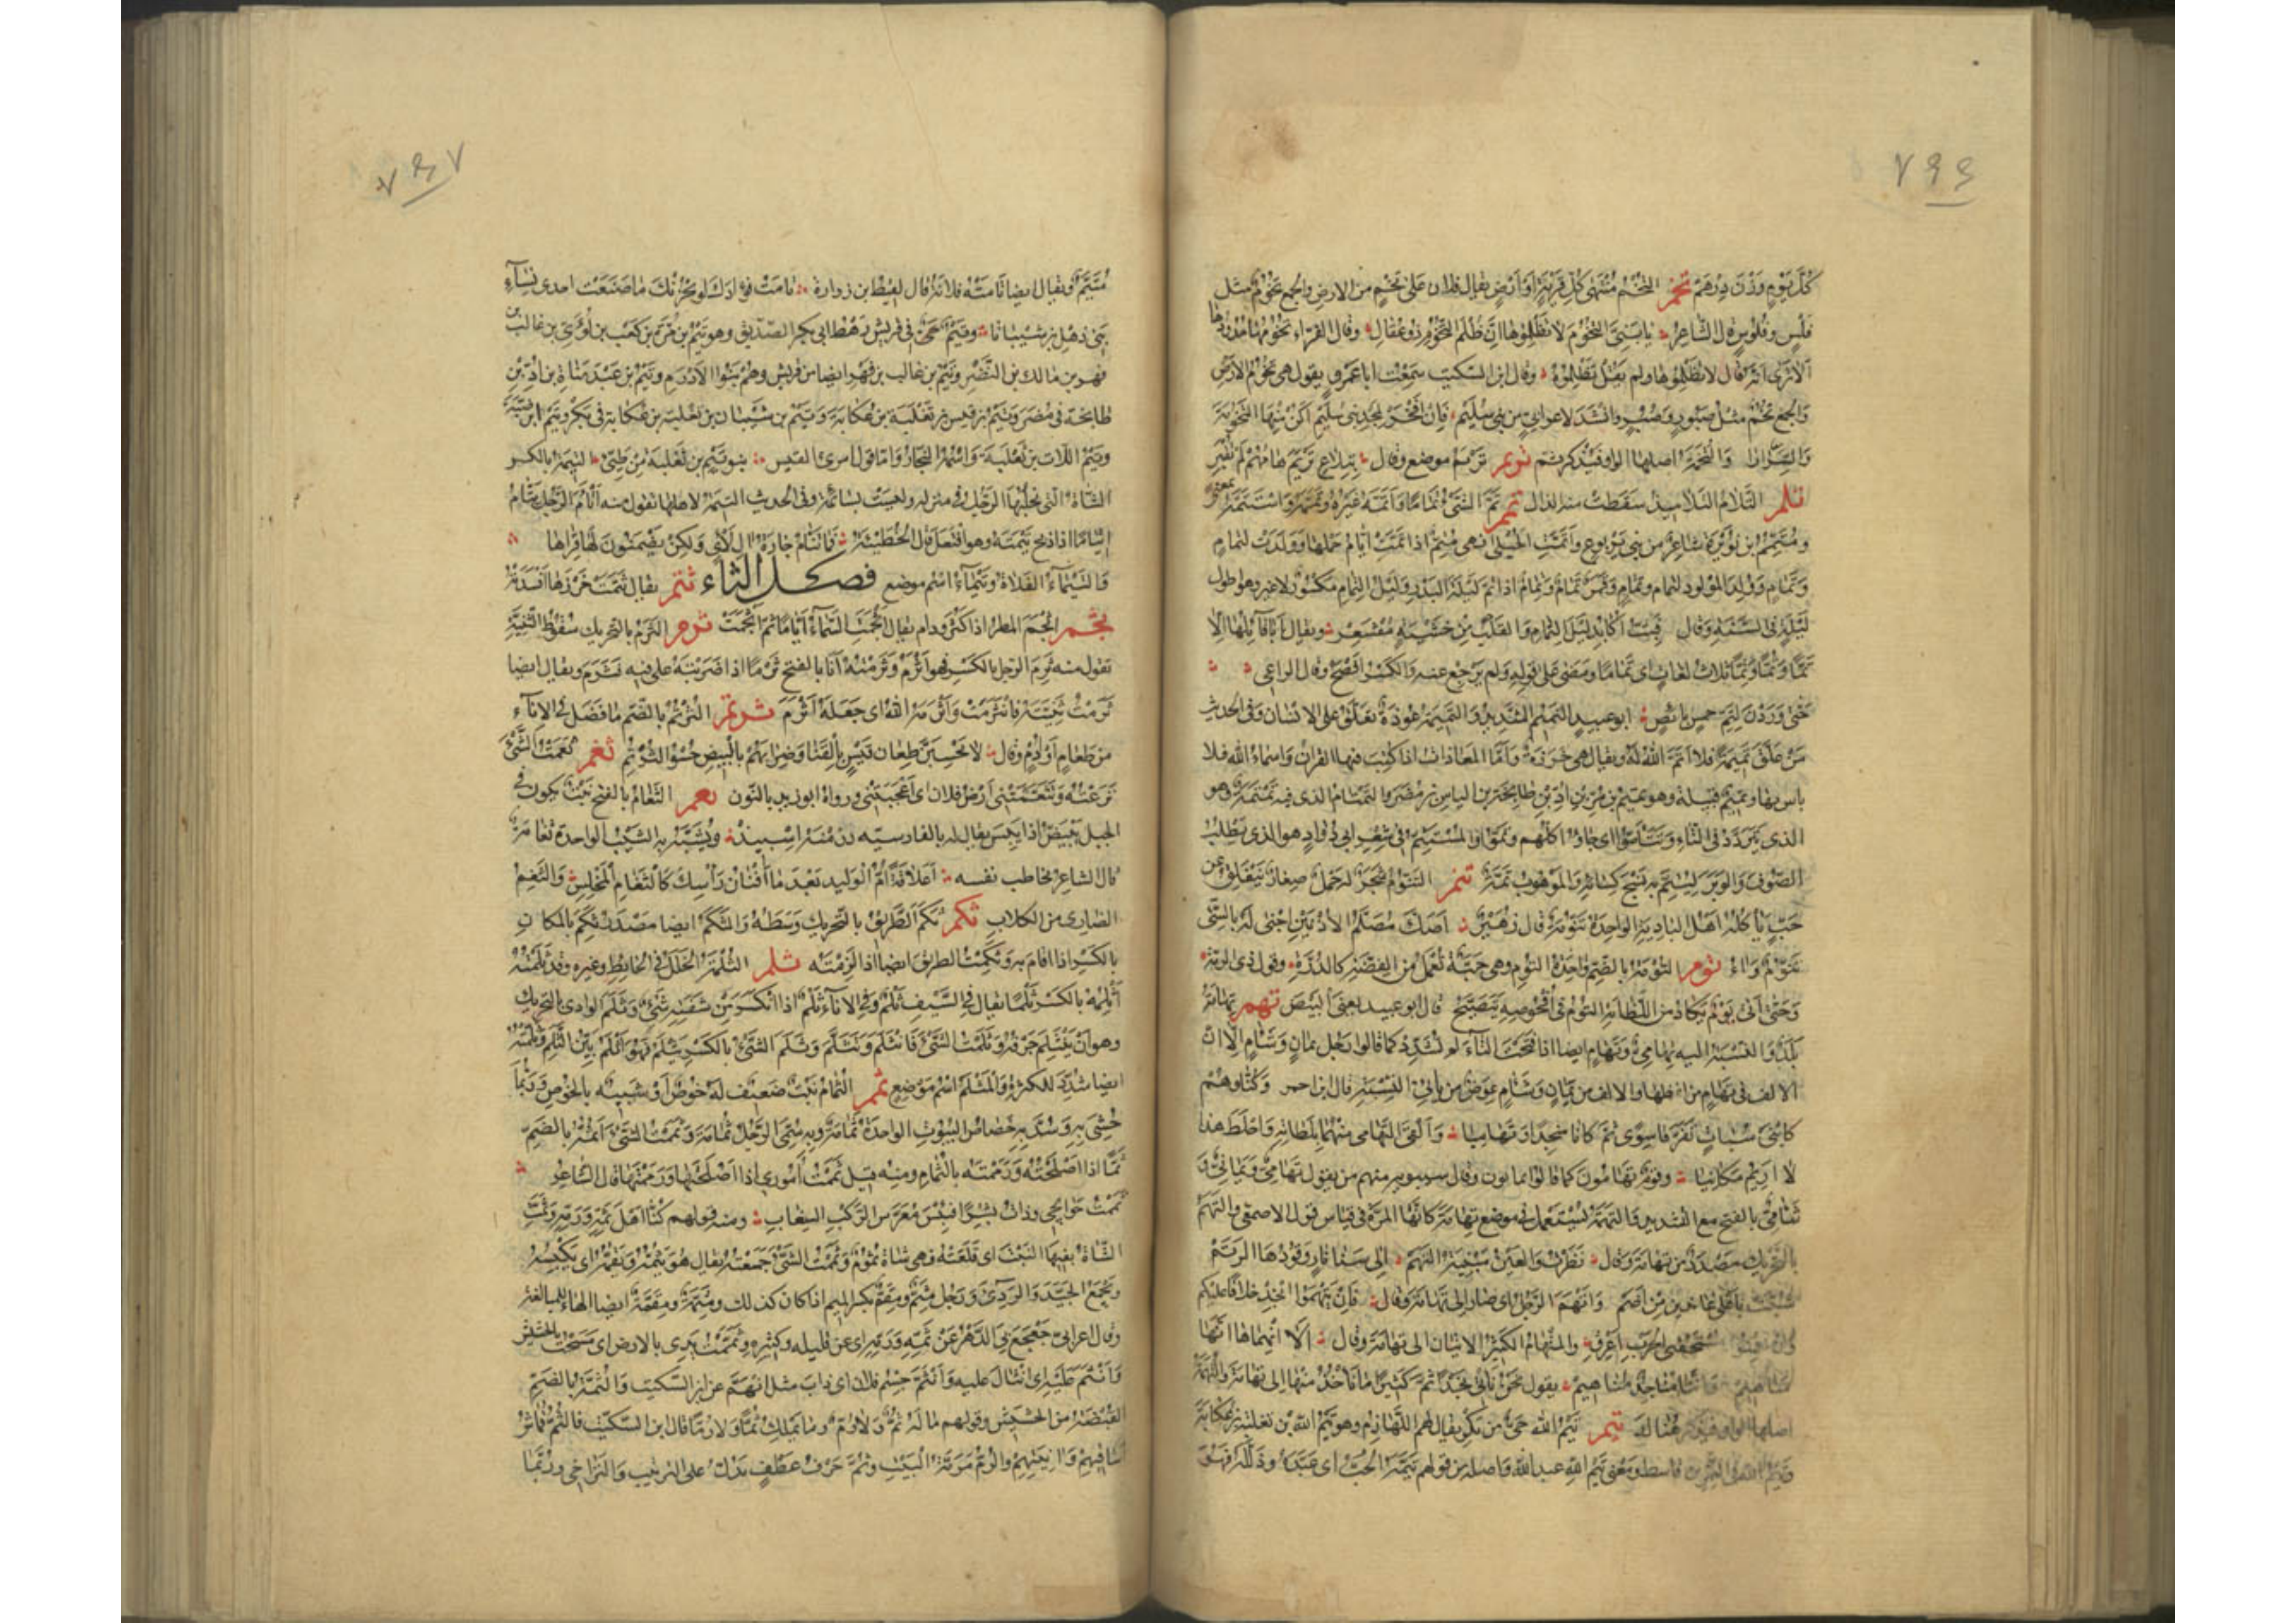 ٧٩٦
كُلَّ يَوْمٍ وَزْنَ دِرْهَمٍ تخم التَّخْمُ مُنْتَهَى كُلِّ قَرْيَةٍ أَوْ أَرْضٍ يقال فلان على تَخْمٍ من الارض والجمع تُخُومٌ مثل
فَلْسٍ وفُلُوسٍ قال الشَّاعِرُ يا بَنِيَّ التُّخُومَ لا تَظْلِمُوها إنَّ ظُلْمَ التُّخُومِ ذو عُقَّالِ وقال الفراء تُخُومُها حُدُودُها
ألا ترى انه قال لا تظلموها ولم يقل تظلموه وقال ابن السكيت سمعت ابا عمرو يقول هي تَخُومُ الارض
والجمع تُخُمٌ مثل صَبُورٍ وصُبُرٍ وانشد لاعرابي من بني سُلَيْم فإن أفْخَرْ بمجد بني سُلَيْمٍ أكُنْ منها التَّخُومَةَ
والسَّرَارا والتُّخَمَةُ اصلها الواو فيذكر ثَمَّ ترم تَرْيَمُ موضع وقال بِتِلاعِ تَرْيَمَ هامُهُمْ لم تُقْبَرِ
تلم التَّلامُ التلاميذ سقطت منه الذال تمم تَمَّ الشَّيْءُ تَمَامًا وأتَمَّهُ غَيْرُهُ وتَمَّمَهُ واسْتَتَمَّهُ بمعنى
ومُتَمِّمُ بن نُوَيْرَةَ شاعر من بني يربوع وأتَمَّتِ الحُبْلَى فهي مُتِمٌّ اذا تَمَّتْ أيام حملها وولدت لتَمَامٍ
وتِمَامٍ ووُلِدَ المولود لتَمَام وتِمَام وقَمَرٌ تَمَامٌ وتِمَامٌ اذا تم ليلة البدر وليل التِّمام مكسور لا غير وهو اطول
ليلة في السَّنَةِ وقال فَبِتُّ أُكَابِدُ لَيْلَ التِّمَامِ والقَلْبُ مِنْ خَشْيَةٍ مُقْشَعِرْ ويقال أبى قائلها الا
تَمًّا وتُمًّا وتِمًّا ثلاث لغات اى تَمَامًا ومضى على قوله ولم يرجع عنه والكسر افصح وقال الراعي
حَتَّى وَرَدْنَ لِتِمِّ خِمْسٍ بَائِصٍ ابو عبيد التميم الشديد والتميمة عُوذَةٌ تعلق على الانسان وفى الحديث
مَنْ عَلَّقَ تَمِيمَةً فلا أتَمَّ الله له ويقال هي خرزة وأمَّا المعاذات اذا كتب فيها القرآن واسماء الله فلا
باس بها وتميم قبيلة وهو تميم بن مُرِّ بن أُدِّ بن طابخة بن الياس بن مضر والتَّمْتَامُ الذى فيه تَمْتَمَةٌ وهو
الذى يَتَرَدَّدُ فى التَّاءِ وتَتَامُّوا اى جاؤا كلهم وتمّوا والمُسْتَتِمُّ فى شِعْرِ ابي دُوَادٍ هو الذى يطلب
الصُّوفَ والوَبَرَ لِيُتِمَّ به نسج كسائه والموهوب تُمَّةٌ تنم التَّنُّومُ شَجَرٌ له حَمْلٌ صِغَارٌ يتفلق عن
حَبٍّ يأكله اهل البادية الواحدة تَنُّومَةٌ قال زُهَيْر أَصَكَّ مُصَلَّمِ الأُذُنَيْنِ أجْنَى له بالسِّيِّ
تَنُّومٌ وآءُ توم التُّومَةُ بالضم واحدة التُّومِ وهي حَبَّةٌ تعمل من الفضة كالدُّرَّةِ وقول ذى الرمة
وَحَتَّى أَتَى يَوْمٌ يَكَادُ مِنَ اللَّظَى به التُّومُ فى أُفْحُوصِهِ يَتَصَيَّحُ قال ابو عبيد يعنى البيض تهم تِهَامَةُ
بَلَدٌ والنِّسْبَةُ اليه تِهَامِيٌّ وتَهَامٍ ايضا اذا فتحت التاء لم تشدد كما قالوا رجل يمان وشآم إلا أن
الالف فى تَهَامٍ من لفظها والالف من يَمَانٍ وشَآمٍ عوض من يائي النسبة قال ابن احمر وكُنَّا وهُمْ
كابْنَيْ سُبَاتٍ تَفَرَّقَا سِوًى ثُمَّ كانا مُنْجِدًا وتَهَامِيَا وألْقَى التَّهَامِي منهما بِلَطَاتِهِ وأحْلَطَ هذا
لا أَرِيمُ مَكَانِيَا وقوم تَهَامُونَ كما قالوا يمانون وقال سيبويه منهم من يقول تَهَامِيٌّ ويَمَانِيٌّ وَ
شَآمِيٌّ بالفتح مع التشديد والتَّهَمَةُ تستعمل فى موضع تهامة كانها المرة فى قياس قول الاصمعى والتَّهَمُ
بالتحريك مصدر من تهامة وقال نَظَرْتُ والعَيْنُ مُبِينَةُ التَّهَمْ إلى سَنَا نارٍ وقُودُها الرَّتَمْ
شُبَّتْ بأعْلَى عانِدَيْنِ من إضَمْ وأتْهَمَ الرَّجُلُ اى صار إلى تهامة وقال فإنْ تُتْهِمُوا أُنْجِدْ خلافًا عليكم
وإنْ تُعْمِنُوا مُسْتَحْقِبِي الحَرْبِ أُعْرِقِ والمِتْهَامُ الكثير الاتيان الى تهامة وقال ألا انْهَمَاهَا إنَّها
مَنَاهِيمْ وإنَّنَا مَنَاجِدٌ مَتَاهِيمْ يقول نحن نأتي نجدا ثم كثيرا ما نأخذ منها إلى تهامة والتُّهَمَةُ
اصلها الواو فيذكر هناك تيم تَيْمُ الله حَيٌّ من بكر يقال لهم اللَّهَازِم وهو تيم الله بن ثعلبة بن عكابة
وتيم الله فى النمر بن قاسط ومعنى تيم الله عبد الله واصله من قولهم تَيَّمَهُ الحُبُّ اى عَبَّدَهُ وذَلَّلَهُ فهو
٧٩٧
مُتَيَّمٌ ويقال ايضا تَامَتْهُ فلانة قال لقيط بن زرارة تَامَتْ فُؤَادَكَ لو يَحْزُنْكَ ما صَنَعَتْ احدى نساء
بَنِي ذُهْلِ بنِ شَيْبَانَا وتَيْمٌ حَيٌّ فى قريش رَهْطُ ابى بكر الصديق وهو تيم بن مرة بن كعب بن لؤى بن غالب بن
فهر بن مالك بن النضر وتيم بن غالب بن فهر ايضا من قريش وهم بنو الادرم وتيم بن عبد مناة بن اد بن
طابخة فى مضر وتيم بن قيس بن ثعلبة بن عكابة وتيم بن شيبان بن ثعلبة بن عكابة فى بكر وتيم ابن ضبة
وتيم اللات بن ثعلبة واسمه النجار واما قول امرئ القيس بنو تيم بن ثعلبة من طيئ التِّيمَةُ بالكسر
الشاة التى يحلبها الرجل فى منزله وليست بسائمة وفى الحديث التيمة لاهلها تقول منه أتَّامَ الرجل يَتَّامُ
اتِّيَامًا اذا ذبح تيمته وهو افتعل قال الحُطَيْئَةُ فَمَا تَتَّامُ جارَةُ آلِ لَأْيٍ ولكِنْ يَضْمَنُونَ لها قِرَاهَا
والتَّيْمَاءُ الفلاة وتَيْمَاءُ اسم موضع فصل الثاء ثتم يقال ثَتَمَتْ خرزها افسدته
ثجم أثْجَمَ المطر اذا كثر ودام يقال أثْجَمَتِ السماء اياما ثم انْجَمَتْ ثرم الثَّرَمُ بالتحريك سقوط الثَّنِيَّةِ
تقول منه ثَرِمَ الرجل بالكسر فهو أثْرَمُ وثَرَمْتُهُ أنا بالفتح ثَرْمًا اذا ضربته على فيه فثَرِمَ ويقال ايضا
ثَرَمْتُ ثَنِيَّتَهُ فانْثَرَمَتْ وأثْرَمَهُ الله اى جعله أثْرَمَ ثرتم الثُّرْتُمُ بالضم ما فضل فى الاناء
من طعام او أُدْمٍ وقال لا تَحْسِبَنَّ طِعَانَ قَيْسٍ بالقَنَا وضِرَابَهُمْ بالبِيضِ حَسْوَ الثُّرْتُمِ ثعم ثَعَمْتُ الشَّيْءَ
نَزَعْتُهُ وتَثَعَّمَتْنِي ارض فلان اى أعْجَبَتْنِي ورواه ابو زيد بالنون ثغم الثَّغَامُ بالفتح نبت يكون فى
الجبل يَبْيَضُّ اذا يَبِسَ يقال له بالفارسية درمنه اسپيذ ويُشَبَّهُ به الشيب الواحدة ثَغَامَةٌ
قال الشاعر يخاطب نفسه أعَلَاقَةً أُمَّ الوَلِيدِ بَعْدَ ما أفْنَانُ رَأْسِكَ كالثَّغَامِ المُخْلِسِ والثَّغِمُ
الضارى من الكلاب ثكم ثَكَمُ الطَّرِيقِ بالتحريك وسطه والثَّكَمُ ايضا مصدر ثَكِمَ بالمكان
بالكسر اذا اقام به وثَكِمْتُ الطريق ايضا اذا لَزِمْتَهُ ثلم الثُّلْمَةُ الخلل فى الحايط وغيره وقد ثَلَمْتُهُ
أثْلِمُهُ بالكسر ثَلْمًا يقال فى السَّيْفِ ثَلْمٌ وفى الاناء ثَلْمٌ اذا انكسر من شفته شيء وثَلَمُ الوادى بالتحريك
وهو ان يَنْثَلِمَ جُرْفُهُ وثَلَمْتُ الشَّيْءَ فانْثَلَمَ وتَثَلَّمَ وثَلِمَ الشيء بالكسر يَثْلَمُ فهو أثْلَمُ بَيِّنُ الثَّلَمِ وثَلَّمْتُهُ
ايضا شُدِّدَ للكثرة والمُتَثَلَّمُ اسم موضع ثمم الثُّمَامُ نبت ضعيف له خُوصٌ او شبيه بالخوص وربما
حُشِيَ به وسُدَّ به خَصَاصُ البيوت الواحدة ثُمَامَةٌ وبه سُمِّيَ الرجل ثُمَامَةَ وثَمَمْتُ الشيء أثُمُّهُ بالضم
ثَمًّا اذا أصلحته ورَمَمْتَهُ بالثُّمام ومنه قيل ثَمَمْتُ أُموري اذا أصلحتها ورَمَمْتَها قال الشاعر
ثَمَمْتُ حَوَائِجِي ووَذَأْتُ بِشْرًا فبِئْسَ مُعَرَّسُ الرَّكْبِ السِّغَابِ ومنه قولهم كُنَّا أهْلَ ثُمِّهِ ورُمِّهِ وثَمَّتِ
الشَّاةُ بفيها النبت اى قلعته فهي شاة ثَمُومٌ وثَمَمْتُ الشَّيْءَ جَمَعْتُهُ يقال هو يَثُمُّهُ ويَقُمُّهُ اى يَكْنِسُهُ
ويجمع الجيد والردىء ورجل مِثَمٌّ ومِقَمٌّ بكسر الميم اذا كان كذلك ومِثَمَّةٌ ومِقَمَّةٌ ايضا الهاء للمبالغة
وقال اعرابى جَعْجَعَ بي الدَّهْرُ عن ثُمِّهِ ورُمِّهِ اى عن قليله وكثيره وثَمَمْتُ يدى بالارض اى مسحت بالحشيش
وانْثَمَّ عليه اى انثال عليه وانْثَمَّ جسم فلان اى ذاب مثل انْهَمَّ عن ابن السكيت والثُّمَّةُ بالضم
القبضة من الحشيش وقولهم ما له ثُمٌّ ولا رُمٌّ وما يملك ثُمًّا ولا رُمًّا قال ابن السكيت فالثُّمُّ قماش
أساقيهم وآنيتهم والرُّمُّ مرمة البيت وثُمَّ حرف عطف يدل على الترتيب والتراخى وربما